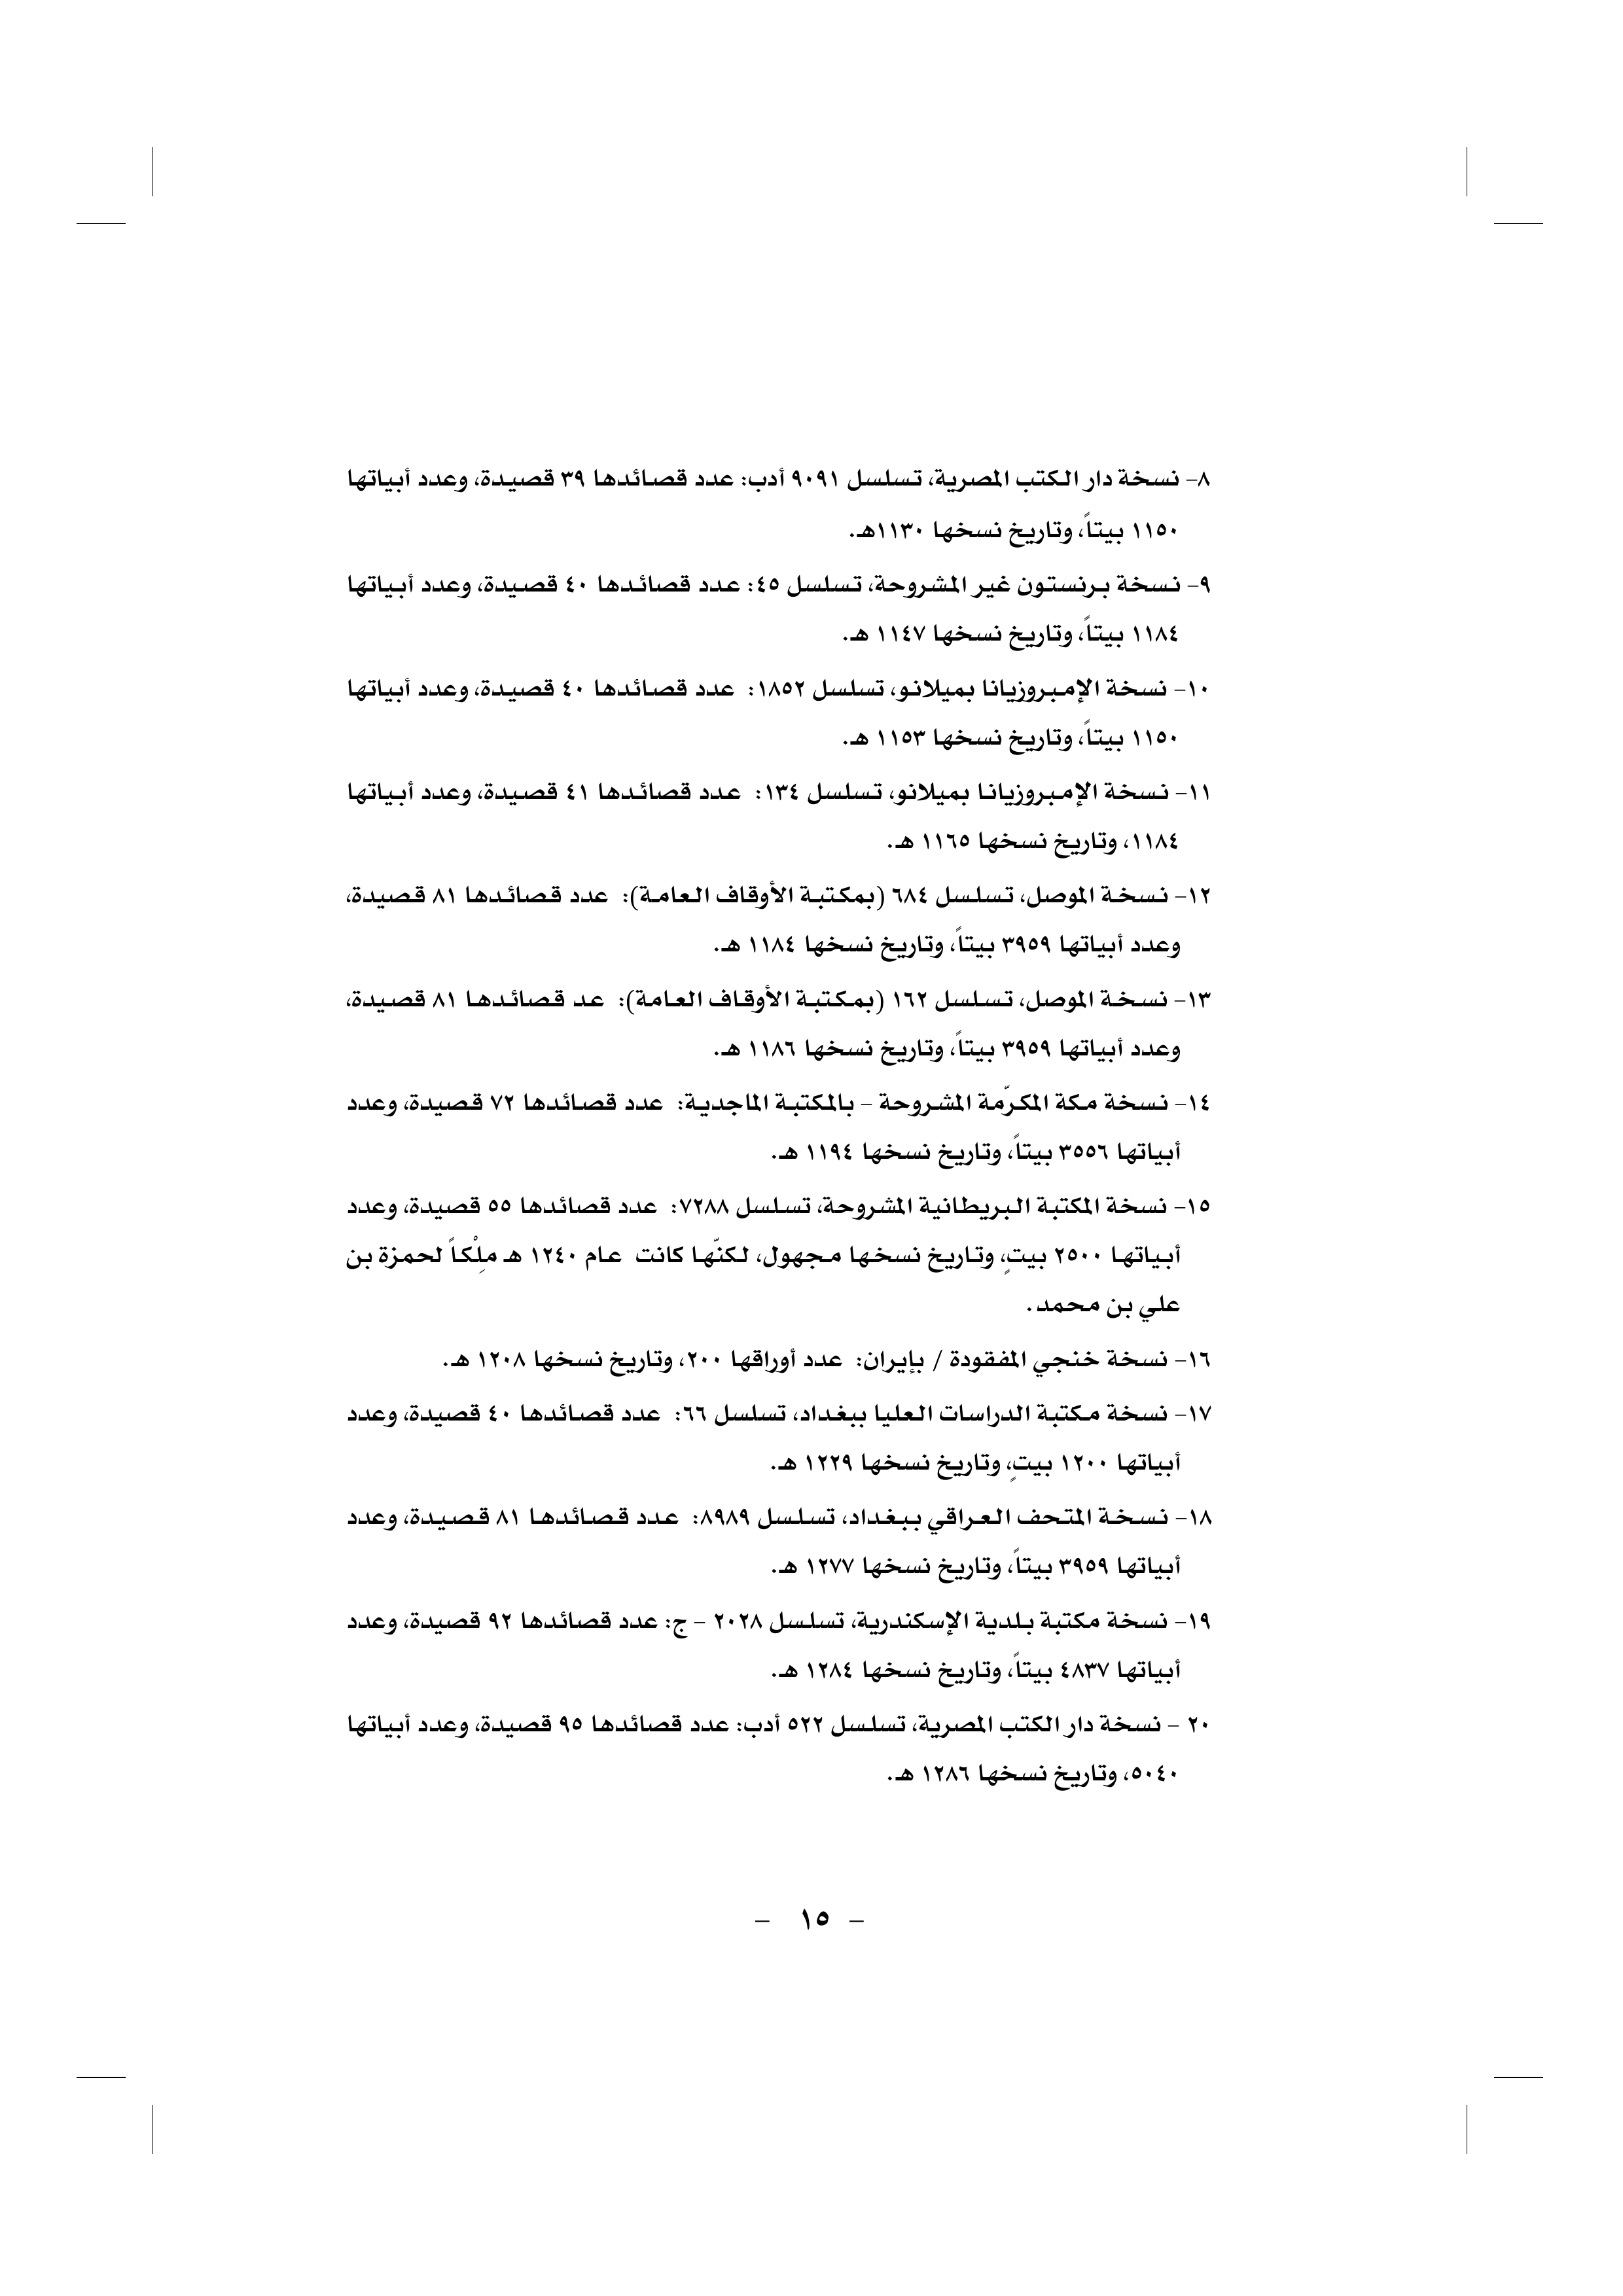 ٨- نسخة دار الكتب المصرية، تسلسل ٩٠٩١ أدب: عدد قصائدها ٣٩ قصيدة، وعدد أبياتها
١١٥٠ بيتاً، وتاريخ نسخها ١١٣٠هـ.
٩- نسخة برنستون غير المشروحة، تسلسل ٤٥: عدد قصائدها ٤٠ قصيدة، وعدد أبياتها
١١٨٤ بيتاً، وتاريخ نسخها ١١٤٧ هـ.
١٠- نسخة الإمبروزيانا بميلانو، تسلسل ١٨٥٢: عدد قصائدها ٤٠ قصيدة، وعدد أبياتها
١١٥٠ بيتاً، وتاريخ نسخها ١١٥٣ هـ.
١١- نسخة الإمبروزيانا بميلانو، تسلسل ١٣٤: عدد قصائدها ٤١ قصيدة، وعدد أبياتها
١١٨٤، وتاريخ نسخها ١١٦٥ هـ.
١٢- نسخة الموصل، تسلسل ٦٨٤ (بمكتبة الأوقاف العامة): عدد قصائدها ٨١ قصيدة،
وعدد أبياتها ٣٩٥٩ بيتاً، وتاريخ نسخها ١١٨٤ هـ.
١٣- نسخة الموصل، تسلسل ١٦٢ (بمكتبة الأوقاف العامة): عد قصائدها ٨١ قصيدة،
وعدد أبياتها ٣٩٥٩ بيتاً، وتاريخ نسخها ١١٨٦ هـ.
١٤- نسخة مكة المكرّمة المشروحة - بالمكتبة الماجدية: عدد قصائدها ٧٢ قصيدة، وعدد
أبياتها ٣٥٥٦ بيتاً، وتاريخ نسخها ١١٩٤ هـ.
١٥- نسخة المكتبة البريطانية المشروحة، تسلسل ٧٢٨٨: عدد قصائدها ٥٥ قصيدة، وعدد
أبياتها ٢٥٠٠ بيتٍ، وتاريخ نسخها مجهول، لكنّها كانت عام ١٢٤٠ هـ مِلْكاً لحمزة بن
علي بن محمد.
١٦- نسخة خنجي المفقودة / بإيران: عدد أوراقها ٢٠٠، وتاريخ نسخها ١٢٠٨ هـ.
١٧- نسخة مكتبة الدراسات العليا ببغداد، تسلسل ٦٦: عدد قصائدها ٤٠ قصيدة، وعدد
أبياتها ١٢٠٠ بيتٍ، وتاريخ نسخها ١٢٢٩ هـ.
١٨- نسخة المتحف العراقي ببغداد، تسلسل ٨٩٨٩: عدد قصائدها ٨١ قصيدة، وعدد
أبياتها ٣٩٥٩ بيتاً، وتاريخ نسخها ١٢٧٧ هـ.
١٩- نسخة مكتبة بلدية الإسكندرية، تسلسل ٢٠٢٨ - ج: عدد قصائدها ٩٢ قصيدة، وعدد
أبياتها ٤٨٣٧ بيتاً، وتاريخ نسخها ١٢٨٤ هـ.
٢٠ - نسخة دار الكتب المصرية، تسلسل ٥٢٢ أدب: عدد قصائدها ٩٥ قصيدة، وعدد أبياتها
٥٠٤٠، وتاريخ نسخها ١٢٨٦ هـ.
- ١٥ -